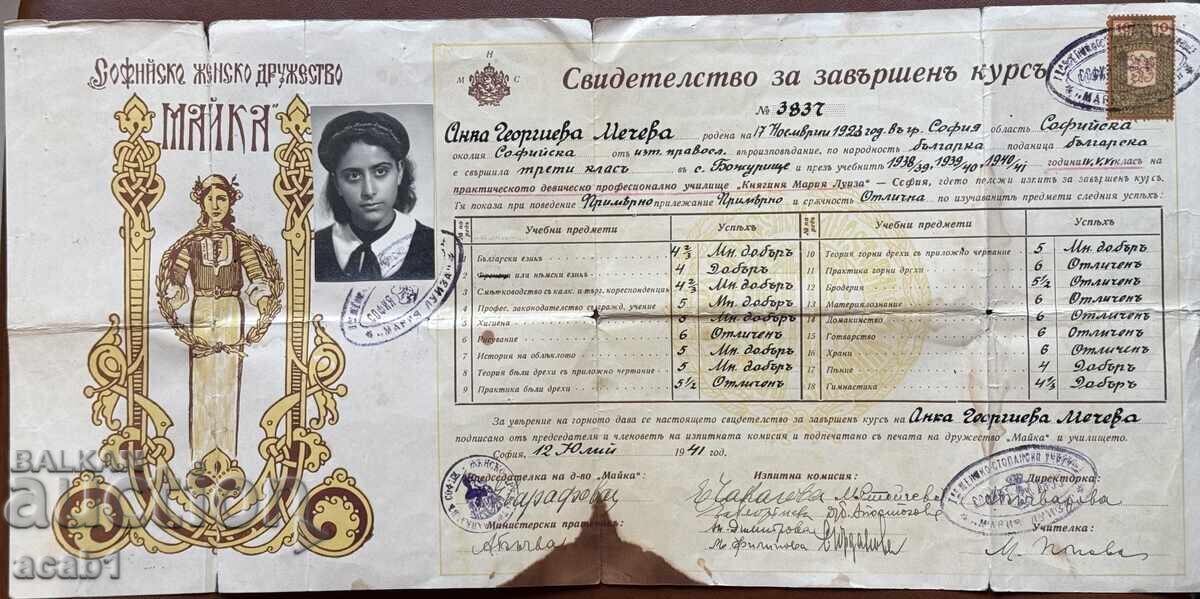 Софийско женско дружество
„МАЙКА“
М Н С
Свидетелство за завършенъ курсъ
№ 3837
10 10
Анка Георгиева Мечева родена на 17 Ноемврий 1923 год. въ гр. София областъ Софийска
околия Софийска отъ изт. правосл. вѣроизповѣдание, по народность българка поданица българска
е свършила трети класъ въ с. Божурище и презъ учебнитѣ 1938/39, 1939/40 1940/41 година IV, V, VI класъ на
практическото девическо професионално училище „Княгиня Мария Луиза“ — София, гдето положи изпитъ за завършенъ курсъ.
Тя показа при поведение Примѣрно прилежание Примѣрно и сржчность Отлична по изучаванитѣ предмети следния успѣхъ:
№ по редъ Учебни предмети Успѣхъ № по редъ Учебни предмети Успѣхъ
1 Български езикъ 4 2/3 Мн. добъръ 10 Теория горни дрехи съ приложно чертание 5 Мн. добъръ
2 Френски или нѣмски езикъ 4 Добъръ 11 Практика горни дрехи 6 Отличенъ
3 Смѣтководство съ калк. и търг. кореспонденция 4 2/3 Мн. добъръ 12 Бродерия 5 1/2 Отличенъ
4 Профес. законодателство съ гражд. учение 5 Мн. добъръ 13 Материалознание 6 Отличенъ
5 Хигиена 5 Мн. добъръ 14 Домакинство 6 Отличенъ
6 Рисуване 6 Отличенъ 15 Готварство 6 Отличенъ
7 История на облѣклото 5 Мн. добъръ 16 Храни 6 Отличенъ
8 Теория бѣли дрехи съ приложно чертание 5 Мн. добъръ 17 Пѣние 4 Добъръ
9 Практика бѣли дрехи 5 1/2 Отличенъ 18 Гимнастика 4 1/3 Добъръ
За увѣрение на горното дава се настоящето свидетелство за завършенъ курсъ на Анка Георгиева Мечева
подписано отъ председателя и членоветѣ на изпитната комисия и подпечатано съ печата на дружество „Майка“ и училището.
София, 12 Юлий 1941 год.
Председателка на д-во „Майка“: Изпитна комисия: Директорка:
Министерски пратеникъ: Учителка:
М. Филипова
М. Попова
СОФИЯ
„МАРИЯ ЛУИЗА“
BALKAN
auction
acab1